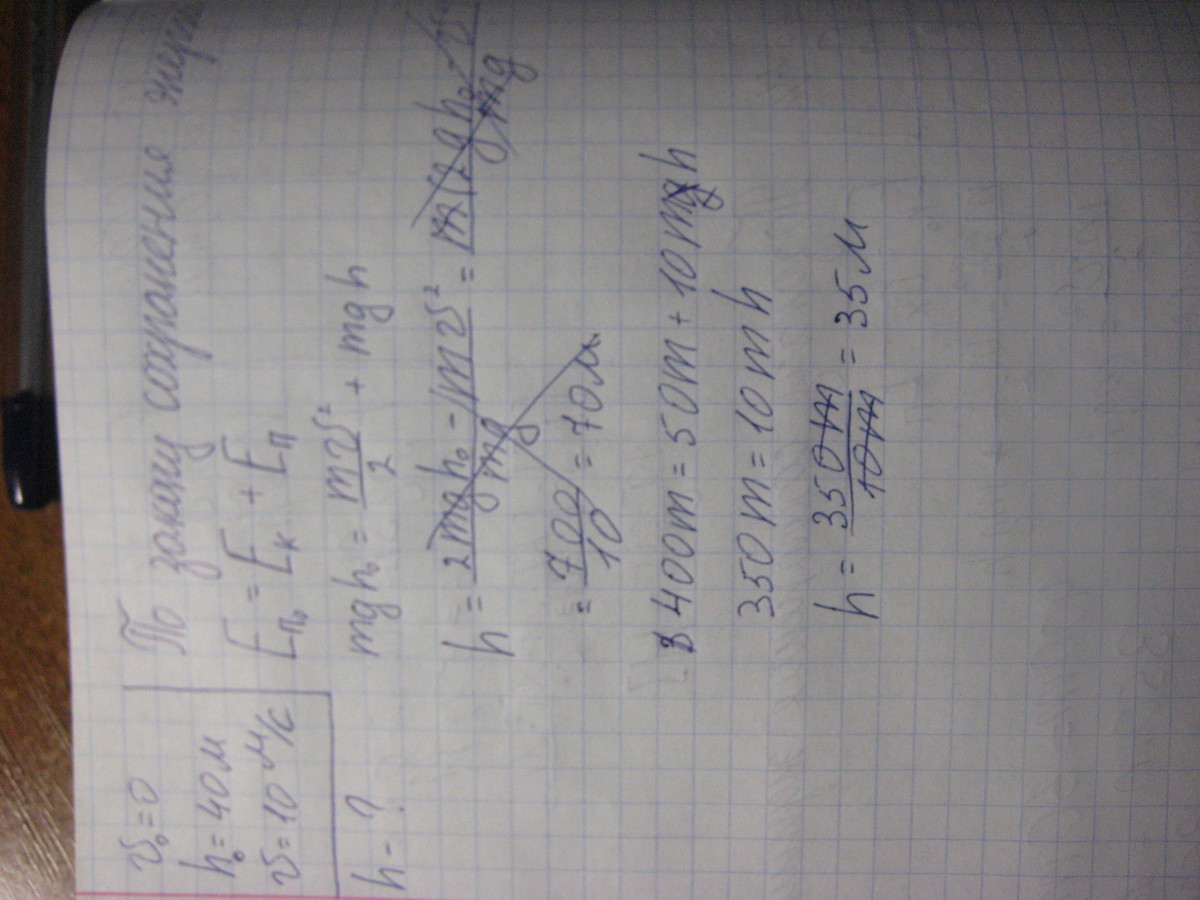 υ₀=0
h₀=40м
υ=10 м/с
h-?
По закону сохранения
Eп₀ = Eк + Eп
mgh₀ = mυ²/2 + mgh
h = 2mgh₀ - mυ²/mg = m(2gh₀ - υ²/mg
= 700/10 = 70м
400m = 50m + 10mh
350m = 10mh
h = 350m/10m = 35м